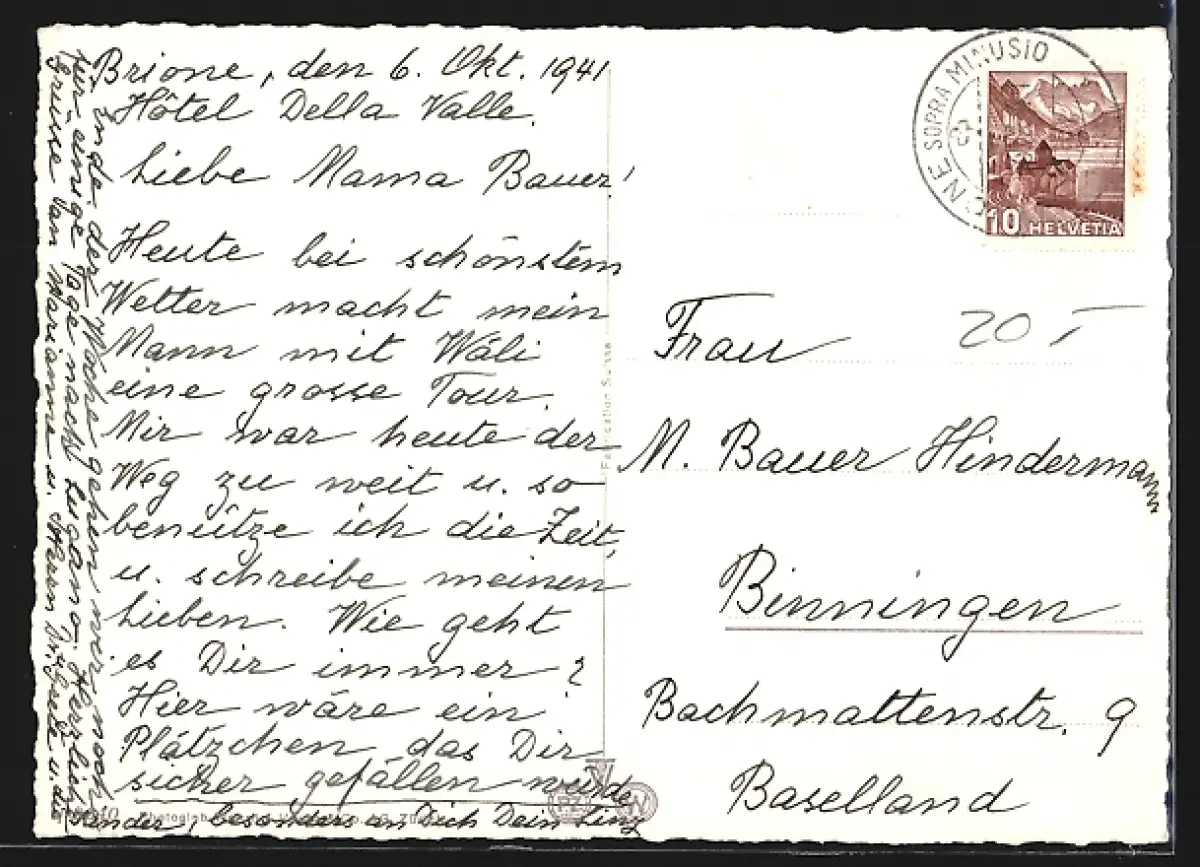 Brione, den 6. Okt. 1941
Hôtel Della Valle.
Liebe Mama Bauer!
Heute bei schönstem
Wetter macht mein
Mann mit Wäli
eine grosse Tour.
Mir war heute der
Weg zu weit u. so
benütze ich die Zeit,
u. schreibe meinen
Lieben. Wie geht
es Dir immer?
Hier wäre ein
Plätzchen das Dir
sicher gefallen würde
Ende der Woche gehen wir noch
für einige Tage nach Lugano. Herzlich
Grüsse von Marianne u. Herrn Dr. u. die
Kinder, besonders an Dich Dein
Fabrication Suisse
BRIONE SOPRA MINUSIO
10 HELVETIA
20
Frau
M. Bauer Hindermann
Binningen
Bachmattenstr. 9
Baselland